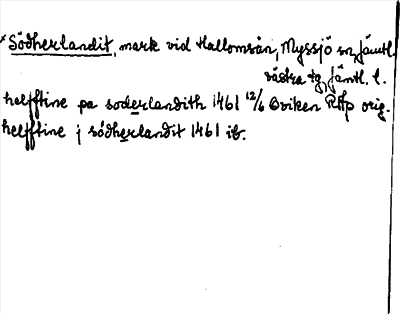 *Södherlandit, mark vid Hallomsån, Myssjö sn, Jämtl.
västra tg, Jämtl. l.
helfftine pa soderlandith 1461 12/6 Oviken RAp orig.
helfftine j södherlandit 1461 ib.